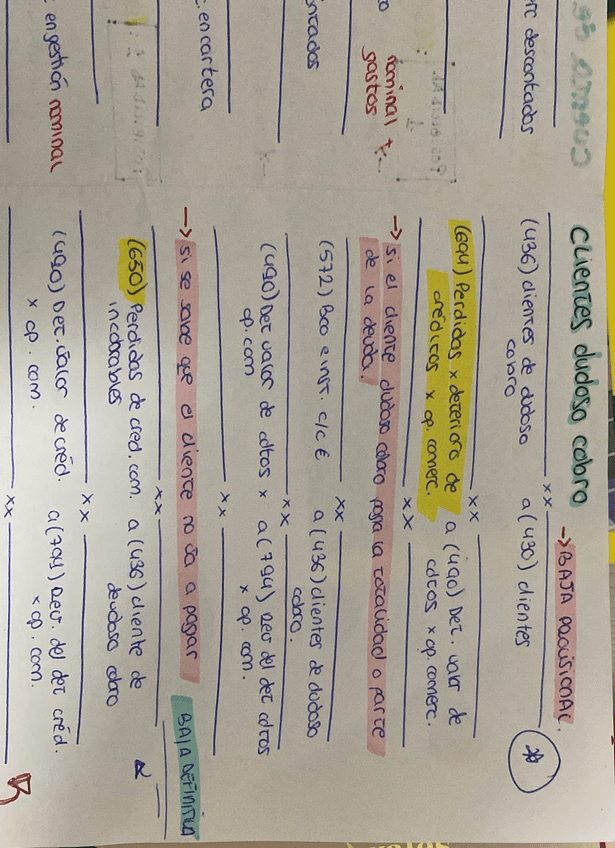 clientes dudoso cobro → BAJA PROVISIONAL.
xx
(436) clientes de dudoso a (430) clientes
cobro
xx
(694) Perdidas x deterioro de a (490) Det. valor de
créditos x op. comerc. cdtos x op. comerc.
xx
→ si el cliente dudoso cobro paga la totalidad o parte
de la deuda.
xx
(572) Bco e inst. c/c € a (436) clientes de dudoso
cobro.
xx
(490) Det valor de cdtos x a (794) Rev del det cdtos
op. com x op. com.
xx
→ si se sabe que el cliente no va a pagar BAJA DEFINITIVA
xx
(650) Perdidas de cred. com. a (436) cliente de
incobrables dudoso cobro
xx
(490) Det. valor de créd. a (794) Rev. del det créd.
x op. com. x op. com.
xx
descontados
nominal +
gastos
en cartera
en gestión nominal